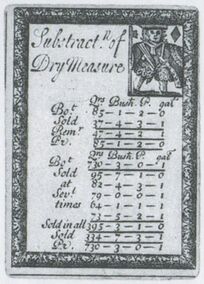 Substract.n of
Dry Measure
Qrs Bush. P. gal
Bo.t 85-1-2-0
Sold 37-4-2-1
Rem.r 47-4-3-1
Pr. 85-1-2-0
Qrs Bush. P. gal
Bo.t
Sold 95-7-1-0
at 82-4-3-1
Sev.l 79-0-0-1
times 64-1-1-1
73-5-2-1
Sold in all 395-3-1-0
Pr. 730-0-0-1